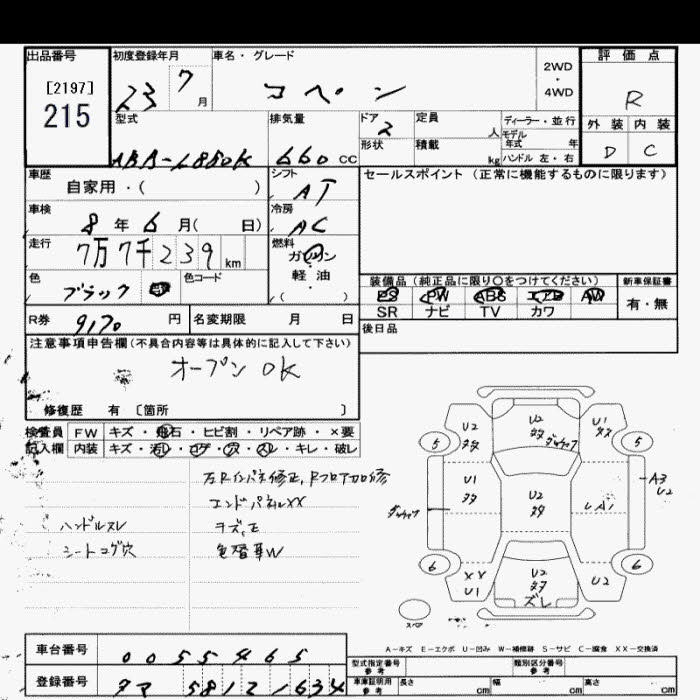 出品番号
[2197]
215
初度登録年月
23 7 月
車名・グレード
コペン
2WD
・
4WD
評価点
R
外装 内装
D C
型式
ABA-L880K
排気量
660 CC
ドア
2
形状
定員
人
積載
kg
ディーラー・並行
モデル
年式 年
ハンドル 左・右
車歴
自家用・( )
シフト
AT
車検
8 年 6 月( 日)
冷房
AC
走行
7万7千239 km
燃料
ガソリン
軽油
( )
色
ブラック
色コード
R券
9170 円
名変期限 月 日
セールスポイント (正常に機能するものに限ります)
装備品 (純正品に限り○をつけてください)
PS PW ABS エアB AW
SR ナビ TV カワ
新車保証書
有・無
後日品
注意事項申告欄 (不具合内容等は具体的に記入して下さい)
オープン OK
修復歴 有 〔箇所 〕
検査員
記入欄
FW キズ・飛石・ヒビ割・リペア跡・×要
内装 キズ・汚レ・コゲ・穴・スレ・キレ・破レ
左Rインパネ修正、Rフロア加修
エンドパネルXX
ハンドルスレ
シートコゲ穴
U2
U2
ダ
U1
5
5
A3
U2
U1
U2
6
6
XX
U1
U2
ズレ
U2
スペア
A－キズ E－エクボ U－凹み W－補修跡 S－サビ C－腐食 XX－交換済
車台番号
0055465
登録番号
581 2 1634
型式指定番号
参考
類別区分番号
参考
車庫証明用
参考
長さ cm
幅 cm
高さ cm